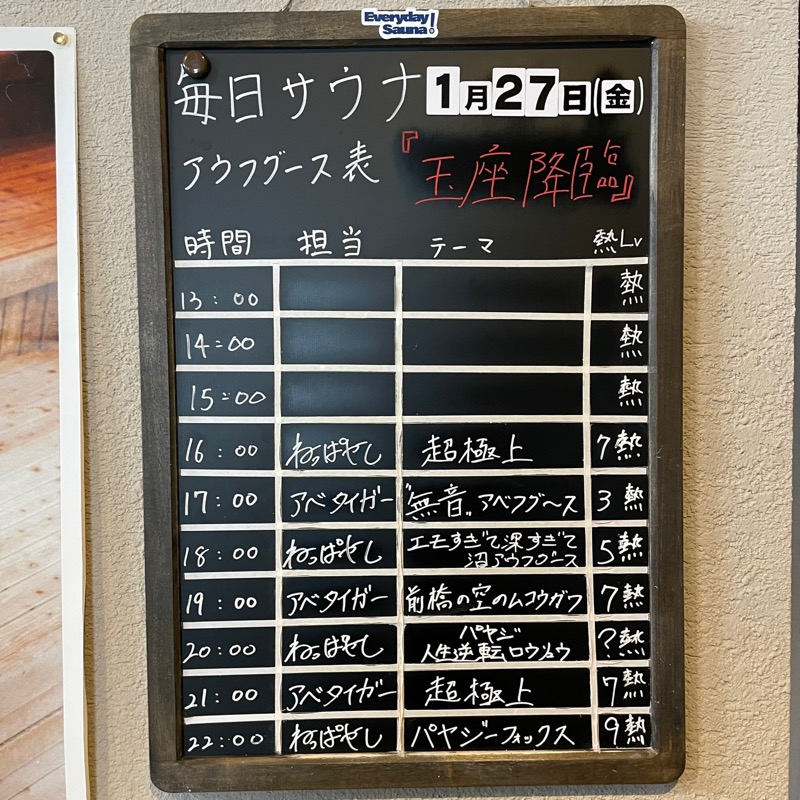 Everyday
Sauna!
毎日サウナ 1月27日(金)
アウフグース表 『玉座降臨』
時間 担当 テーマ 熱Lv
13:00 熱
14:00 熱
15:00 熱
16:00 ねっぱせし 超極上 7熱
17:00 アベタイガー "無音"アベフグ〜ス 3熱
18:00 ねっぱせし エモすぎて深すぎて
沼アウフグース 5熱
19:00 アベタイガー 前橋の空のムコウガワ 7熱
20:00 ねっぱせし パヤジ
人生逆転ロウリュウ ?熱
21:00 アベタイガー 超極上 7熱
22:00 ねっぱせし パヤジーフォックス 9熱